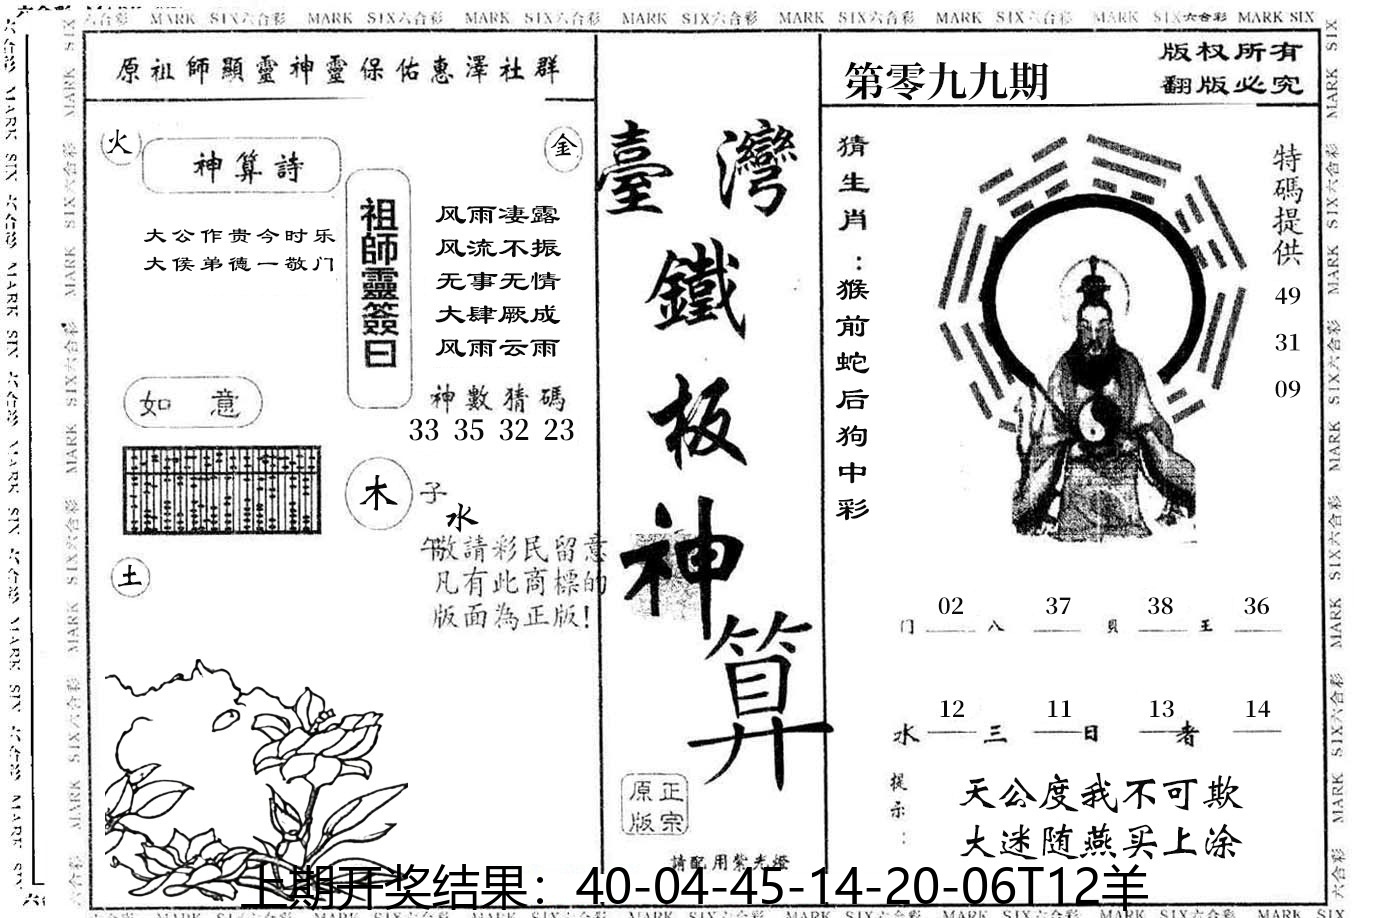 MARK SIX六合彩 MARK SIX六合彩 MARK SIX六合彩 MARK SIX六合彩 MARK SIX六合彩 MARK SIX六合彩 MARK SIX六合彩 MARK SIX
原祖師顯靈神靈保佑惠澤社群
火
金
神算詩
大公作贵今时乐
大侯弟德一敬门
祖師靈簽曰
风雨凄露
风流不振
无事无情
大肆厥成
风雨云雨
神數猜碼
33 35 32 23
如意
木
子
水
午
土
敬請彩民留意
凡有此商標的
版面為正版!
臺灣
鐵
板
神
算
正宗
原版
請配用紫光燈
第零九九期
版权所有
翻版必究
猜生肖：猴前蛇后狗中彩
特碼提供
49
31
09
02 37 38 36
门 八 貝 王
12 11 13 14
水 三 日 者
提示：
天公度我不可欺
大迷随燕买上涂
上期开奖结果：40-04-45-14-20-06T12羊